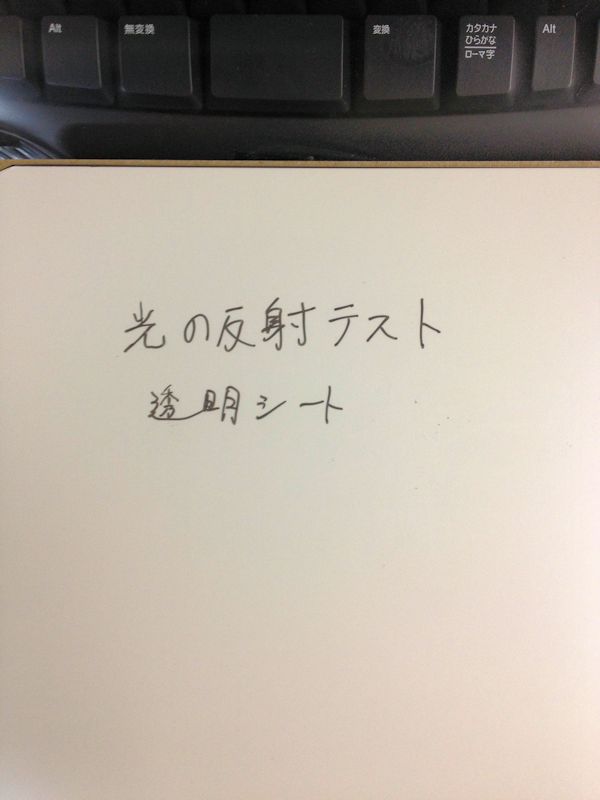 Alt 無変換 変換 カタカナ Alt
ひらがな
ローマ字
光の反射テスト
透明シート